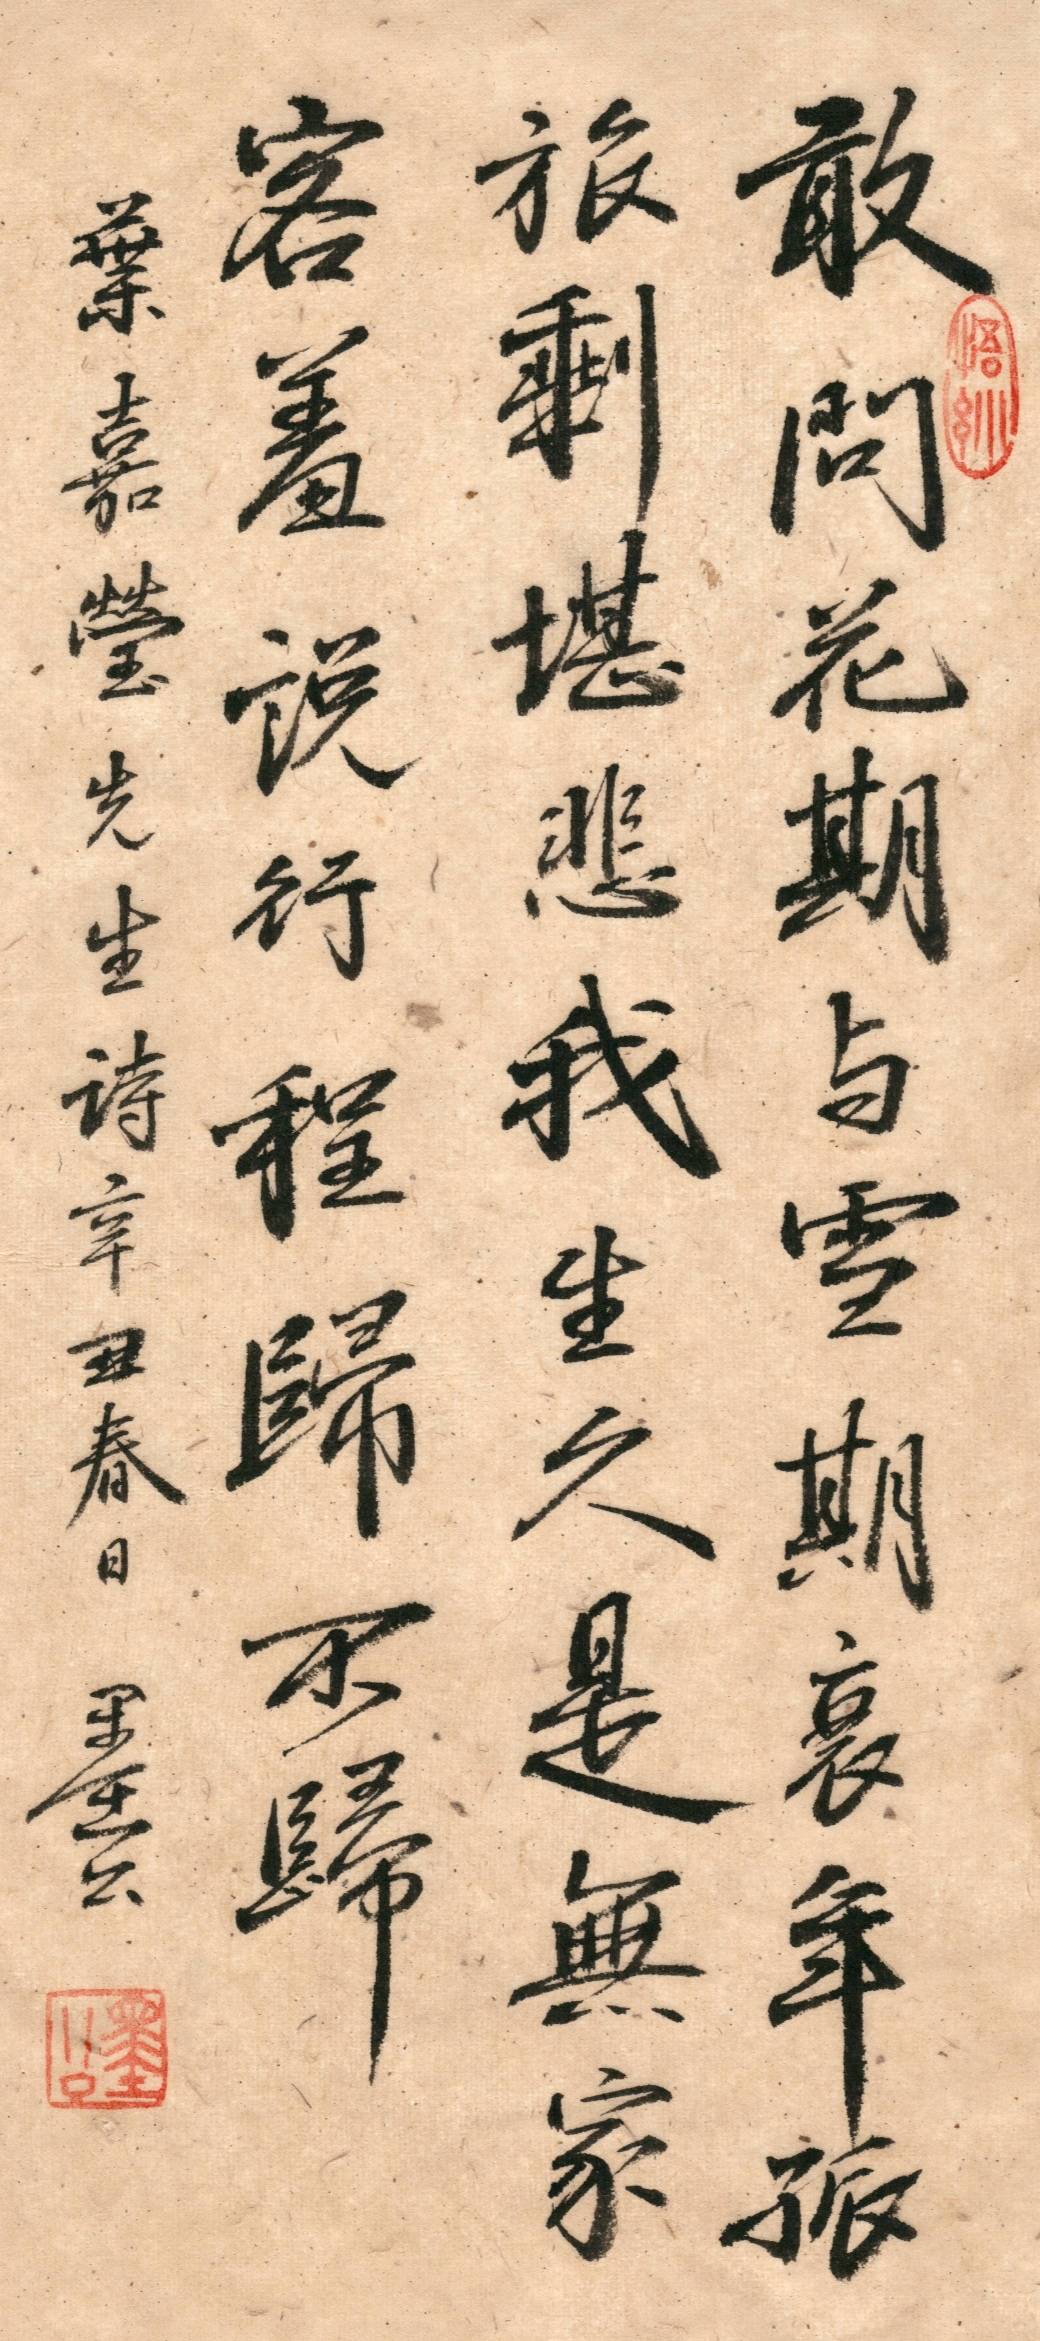 敢問花期与雪期衰年孤
旅剩堪悲我生久是無家
客羞説行程歸不歸
葉嘉瑩先生詩辛丑春日 墨公
墨公